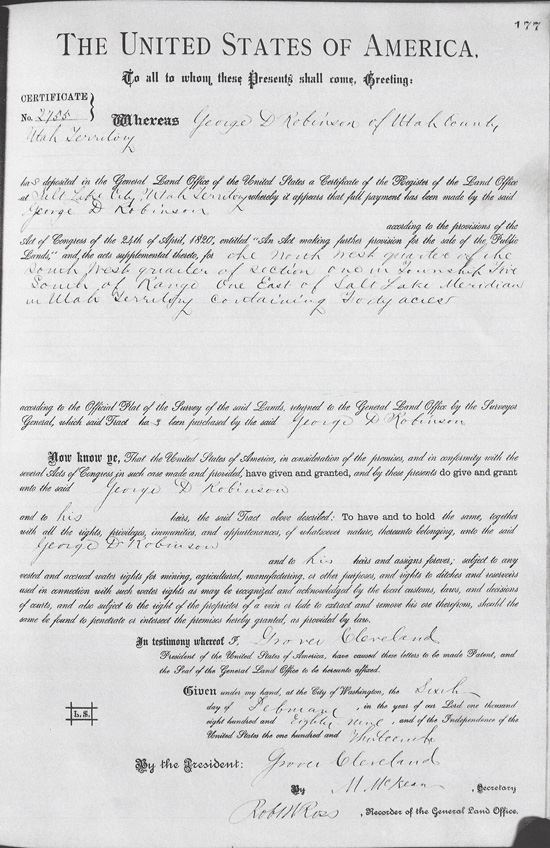 177
THE UNITED STATES OF AMERICA,
To all to whom these Presents shall come, Greeting:
CERTIFICATE
No. 2755
Whereas George D Robinson of Utah County
Utah Territory
has deposited in the General Land Office of the United States a Certificate of the Register of the Land Office
at Salt Lake City, Utah Territory whereby it appears that full payment has been made by the said
George D Robinson
according to the provisions of the
Act of Congress of the 24th of April, 1820, entitled "An Act making further provision for the sale of the Public
Lands," and the acts supplemental thereto, for the North West quarter of the
South West quarter of Section one in Township Five
South of Range One East of Salt Lake Meridian
in Utah Territory containing Forty acres
according to the Official Plat of the Survey of the said Lands, returned to the General Land Office by the Surveyor
General, which said Tract has been purchased by the said George D Robinson
Now know ye, That the United States of America, in consideration of the premises, and in conformity with the
several Acts of Congress in such case made and provided, have given and granted, and by these presents do give and grant
unto the said George D Robinson
and to his heirs, the said Tract above described: To have and to hold the same, together
with all the rights, privileges, immunities, and appurtenances, of whatsoever nature, thereunto belonging, unto the said
George D Robinson
and to his heirs and assigns forever; subject to any
vested and accrued water rights for mining, agricultural, manufacturing, or other purposes, and rights to ditches and reservoirs
used in connection with such water rights as may be recognized and acknowledged by the local customs, laws, and decisions
of courts, and also subject to the right of the proprietor of a vein or lode to extract and remove his ore therefrom, should the
same be found to penetrate or intersect the premises hereby granted, as provided by law.
In testimony whereof I, Grover Cleveland
President of the United States of America, have caused these letters to be made Patent, and
the Seal of the General Land Office to be hereunto affixed.
Given under my hand, at the City of Washington, the Sixth
day of February, in the year of our Lord one thousand
eight hundred and Eighty nine, and of the Independence of the
United States the one hundred and Thirteenth
L.S.
By the President: Grover Cleveland
By M. McKean, Secretary
Robt W Ross, Recorder of the General Land Office.